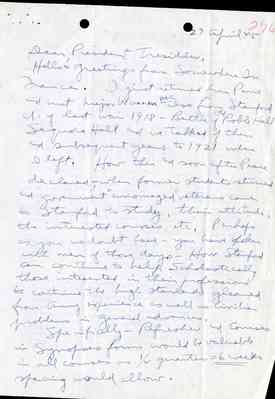 27 April 45
Dear President Tresidder,
Hello & greetings from Somewhere In
France. I just returned from Paris
& met Major
U. of last war 1918
Sequoia Hall & we talked of then
and subsequent years to 1921 when
I left. How then & soon after Peace
declared when former students returned
and government encouraged veterans come
to Stanford to study, their attitude,
the interested courses, etc. Perhaps
as you no doubt have - you have
with men of those days - How Stanford
can continue to help Scholastically
those interested in the professions
to continue the high standards gleaned
from Army experience as well as civilian
problems in general advance.
Specifically - Refresher & Courses
in Synopses forms would be valuable
in all courses in ½ quarter or 6 weeks
spacing would allow.